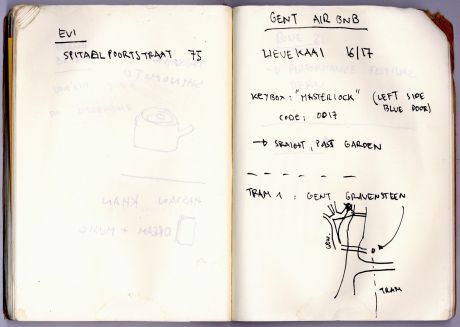 EVI
SPITAALPOORTSTRAAT 75
GENT AIRBNB
LIEVEKAAI 16/17
KEYBOX: "MASTERLOCK" (LEFT SIDE
BLUE DOOR)
CODE: 0017
→ STRAIGHT, PAST GARDEN
TRAM 1 : GENT GRAVENSTEEN
TRAM